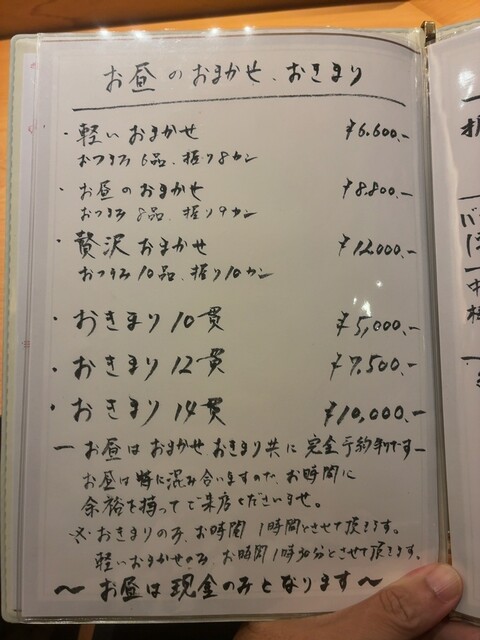 お昼のおまかせ、おきまり
・軽いおまかせ ¥6.600.-
おつまみ6品、握り8カン
・お昼のおまかせ ¥8.800.-
おつまみ8品、握り9カン
・贅沢おまかせ ¥12000.-
おつまみ10品、握り10カン
・おきまり10貫 ¥5,000.-
・おきまり12貫 ¥7,500.-
・おきまり14貫 ¥10,000.-
ー お昼はおまかせおきまり共に完全予約制です ー
お昼は特に混み合いますので、お時間に
余裕を持ってご来店くださいませ。
※おきまりのみ、お時間1時間とさせて頂きます。
軽いおまかせのみ、お時間1時30分とさせて頂きます。
〜 お昼は現金のみとなります 〜